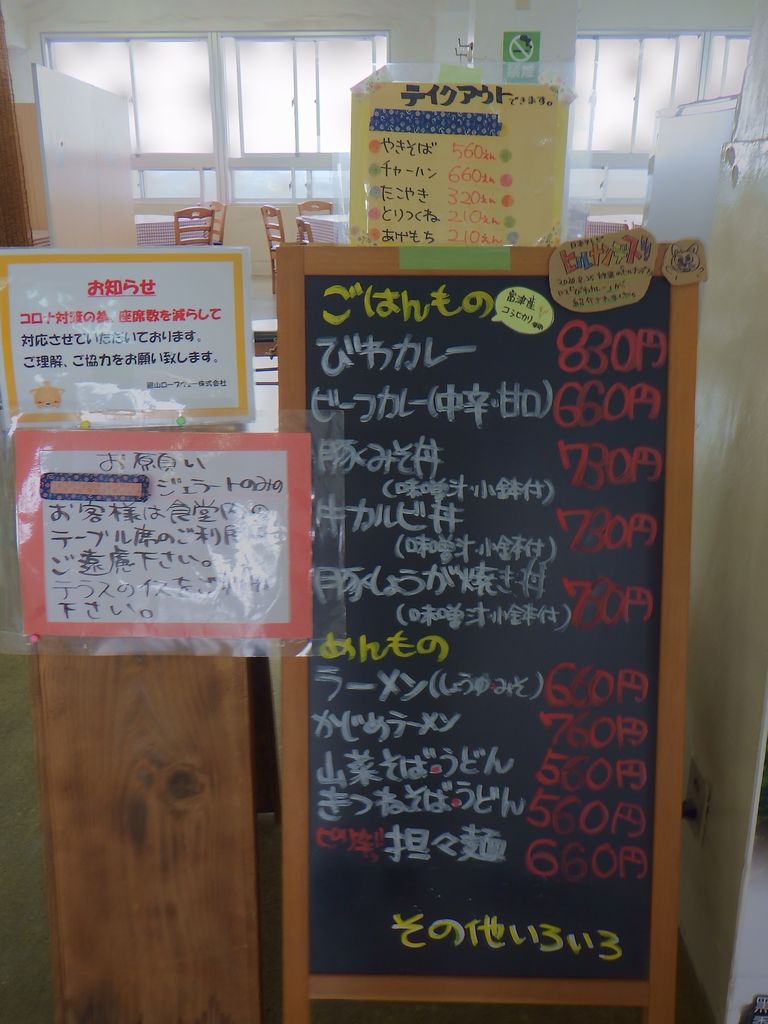 禁煙
テイクアウトできます。
やきそば 560えん
チャーハン 660えん
たこやき 320えん
とりつくね 210えん
あげもち 210えん
お知らせ
コロナ対策の為、座席数を減らして
対応させていただいております。
ご理解、ご協力をお願い致します。
鋸山ロープウェー株式会社
お願い
ジェラートのみの
お客様は食堂内の
テーブル席のご利用
ご遠慮下さい。
テラスのイスをご利用
下さい。
ヒルナンデス!
2020.8.25
「びわカレー」が
紹介されました
ごはんもの
富津産
コシヒカリ使用
びわカレー 830円
ビーフカレー(中辛・甘口) 660円
豚みそ丼 730円
(味噌汁・小鉢付)
牛カルビ丼 730円
(味噌汁・小鉢付)
豚しょうが焼き丼 730円
(味噌汁・小鉢付)
めんもの
ラーメン(しょうゆ・みそ) 660円
かじめラーメン 760円
山菜そば・うどん 560円
きつねそば・うどん 560円
ピリ辛!! 担々麺 660円
その他いろいろ